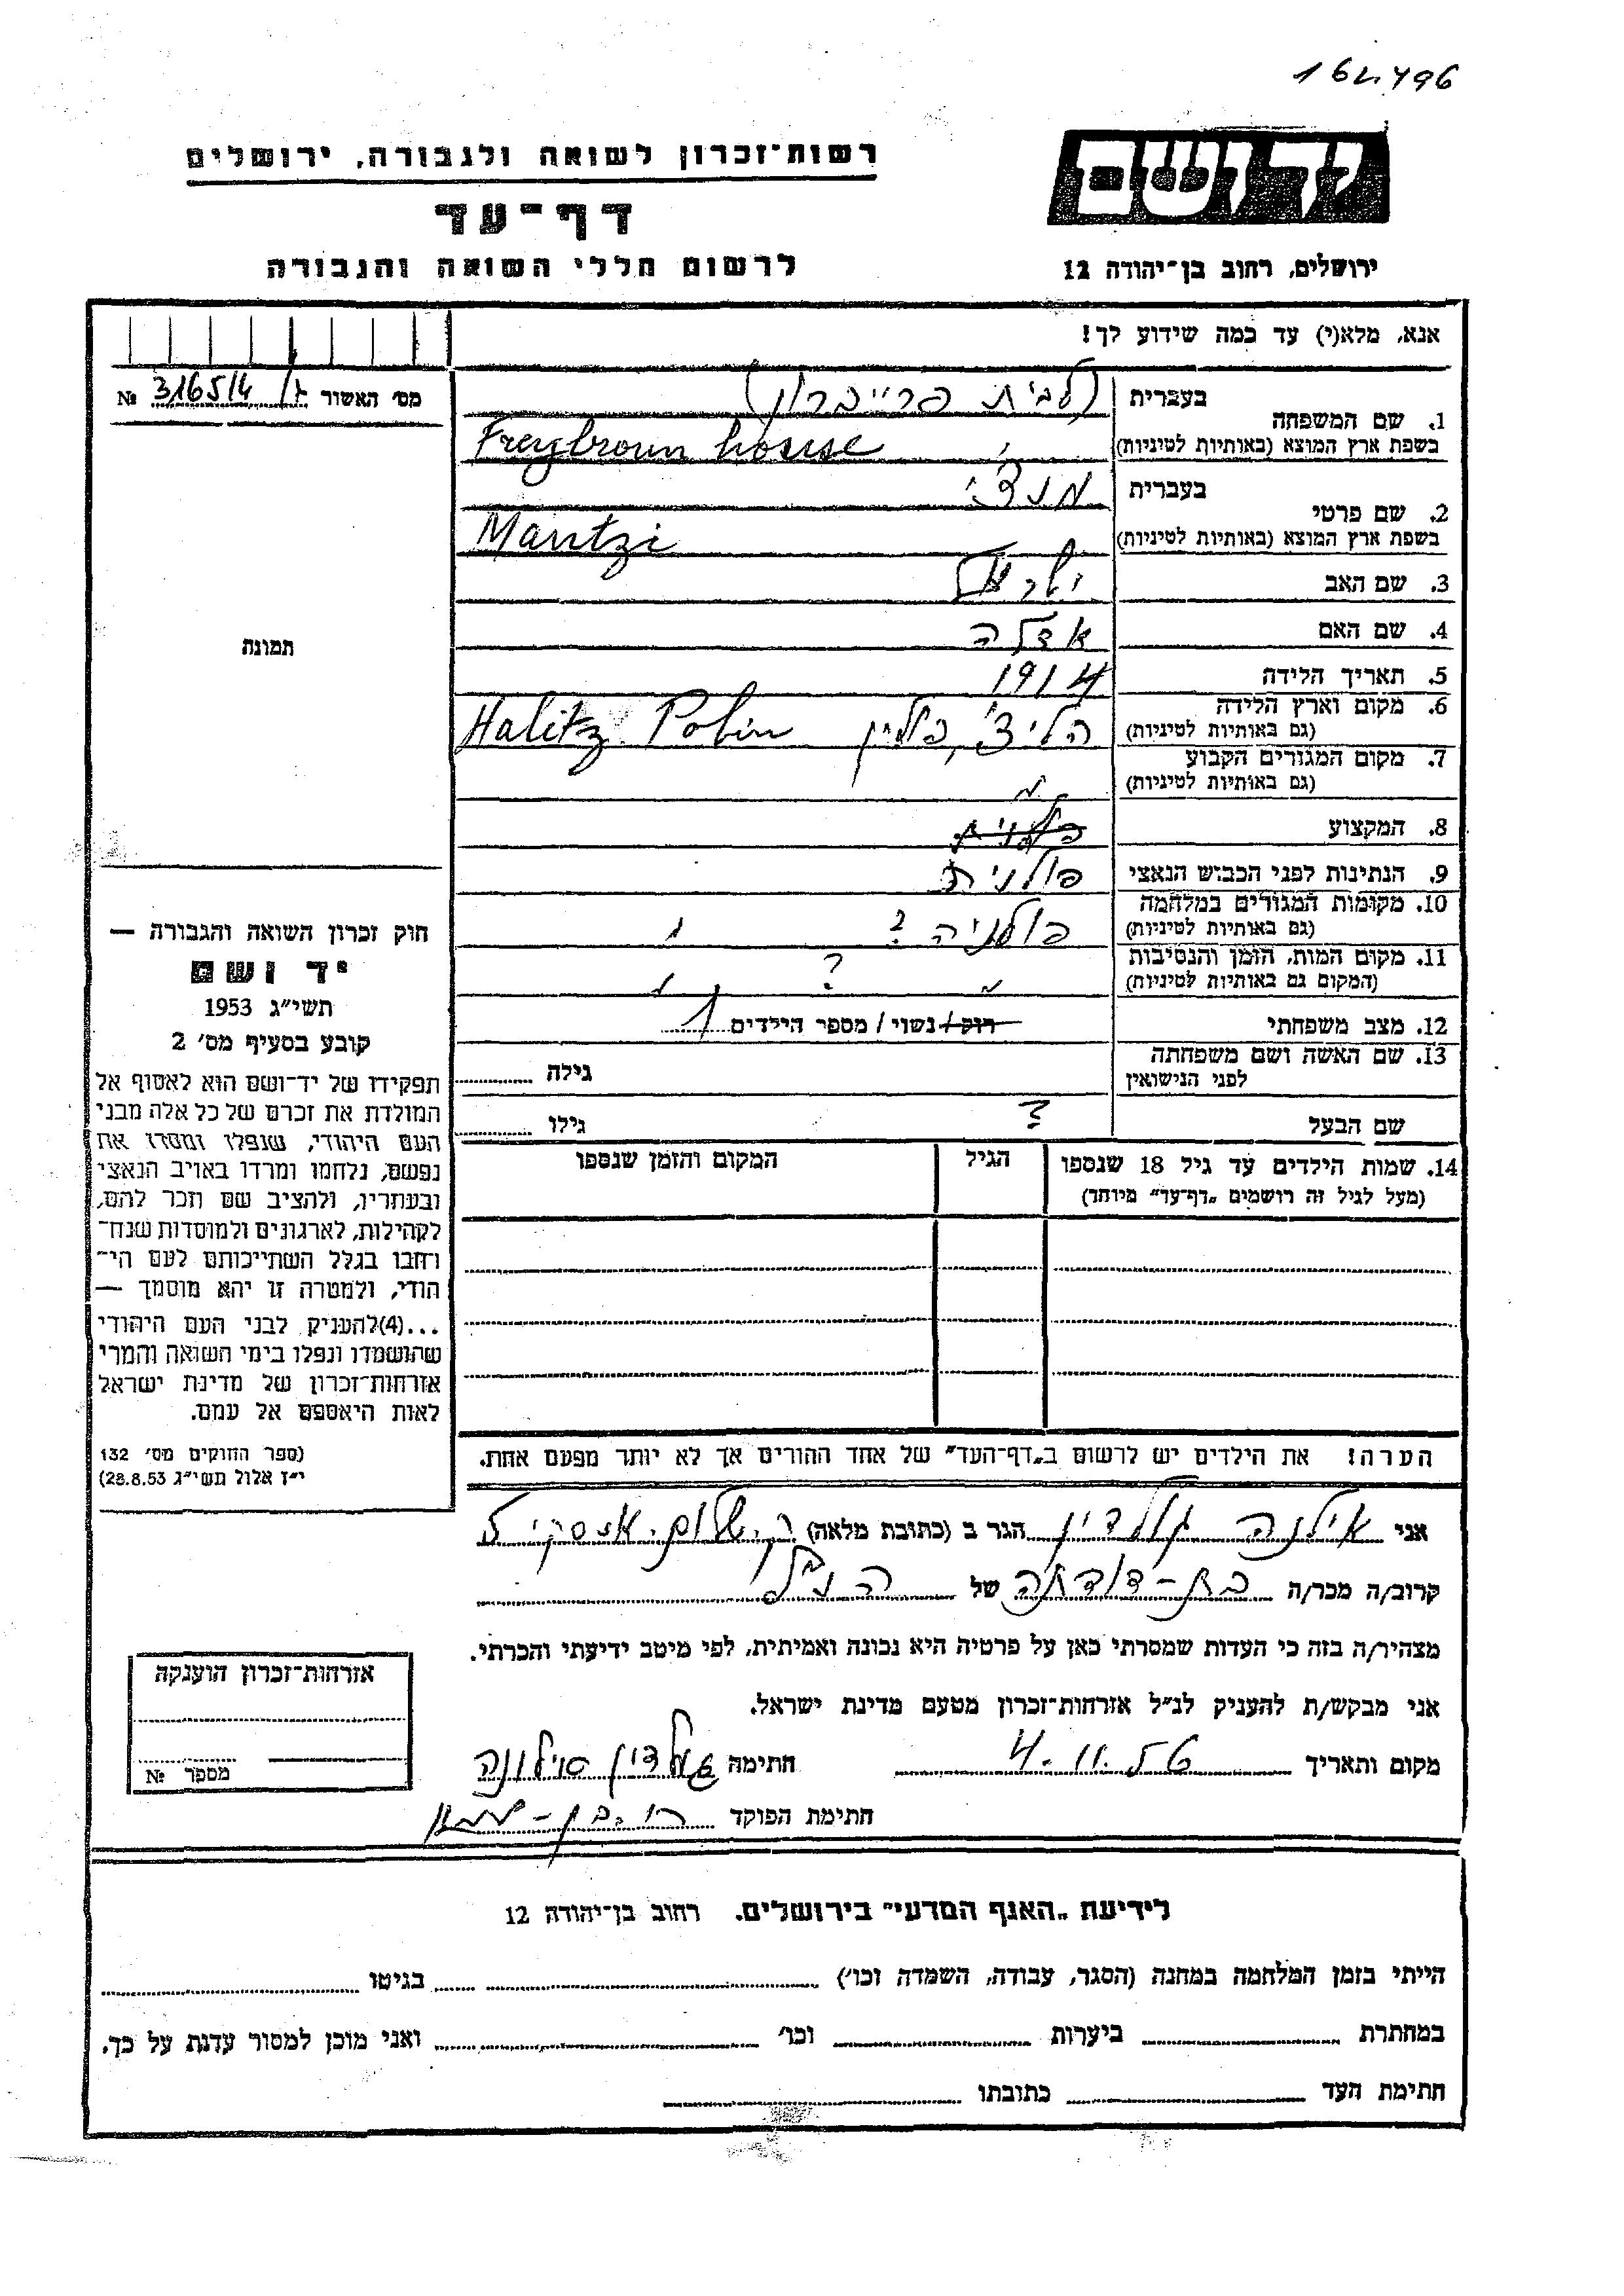 162496
יד ושם
רשות־זכרון לשואה ולגבורה, ירושלים
דף־עד
לרשום חללי השואה והגבורה
ירושלים, רחוב בן־יהודה 12
אנא, מלא(י) עד כמה שידוע לך!
מס׳ האשור 316514 №
1. שם המשפחה
בעברית (לבית פרייברון)
בשפת ארץ המוצא (באותיות לטיניות) Freybroun house
2. שם פרטי
בעברית מנצי
בשפת ארץ המוצא (באותיות לטיניות) Mantzi
3. שם האב
4. שם האם אדלה
5. תאריך הלידה 1914
6. מקום וארץ הלידה
(גם באותיות לטיניות) הליצ׳, פולין Halitz Polin
7. מקום המגורים הקבוע
(גם באותיות לטיניות)
8. המקצוע
9. הנתינות לפני הכבוש הנאצי פולנית
10. מקומות המגורים במלחמה
(גם באותיות לטיניות) פולניה ?
11. מקום המות, הזמן והנסיבות
(המקום גם באותיות לטיניות) ?
12. מצב משפחתי רוק / נשוי / מספר הילדים 1
13. שם האשה ושם משפחתה
לפני הנישואין גילה
שם הבעל ? גילו
14. שמות הילדים עד גיל 18 שנספו הגיל המקום והזמן שנספו
(מעל לגיל זה רושמים „דף־עד" מיוחד)
הערה! את הילדים יש לרשום ב„דף־העד" של אחד ההורים אך לא יותר מפעם אחת.
תמונה
חוק זכרון השואה והגבורה —
יד ושם
תשי״ג 1953
קובע בסעיף מס׳ 2
תפקידו של יד־ושם הוא לאסוף אל
המולדת את זכרם של כל אלה מבני
העם היהודי, שנפלו ומסרו את
נפשם, נלחמו ומרדו באויב הנאצי
ובעוזריו, ולהציב שם וזכר להם,
לקהילות, לארגונים ולמוסדות שנח־
רחבו בגלל השתייכותם לעם הי־
הודי, ולמטרה זו יהא מוסמך —
...(4)להעניק לבני העם היהודי
שהושמדו ונפלו בימי השואה והמרי
אזרחות־זכרון של מדינת ישראל
לאות היאספם אל עמם.
(ספר החוקים מס׳ 132
י״ז אלול תשי״ג 28.8.53)
אני אילנה גולדין הגר ב (כתובת מלאה)
קרוב/ה מכר/ה בת-דודתה של הנ״ל
מצהיר/ה בזה כי העדות שמסרתי כאן על פרטיה היא נכונה ואמיתית, לפי מיטב ידיעתי והכרתי.
אני מבקש/ת להעניק לנ״ל אזרחות־זכרון מטעם מדינת ישראל.
מקום ותאריך 4.11.56 חתימה גולדין אילנה
חתימת הפוקד
אזרחות־זכרון הוענקה
מספר №
לידיעת „האגף המדעי" בירושלים. רחוב בן־יהודה 12
הייתי בזמן המלחמה במחנה (הסגר, עבודה, השמדה וכו׳) בגיטו
במחתרת ביערות וכו׳ ואני מוכן למסור עדות על כך.
חתימת העד כתובתו